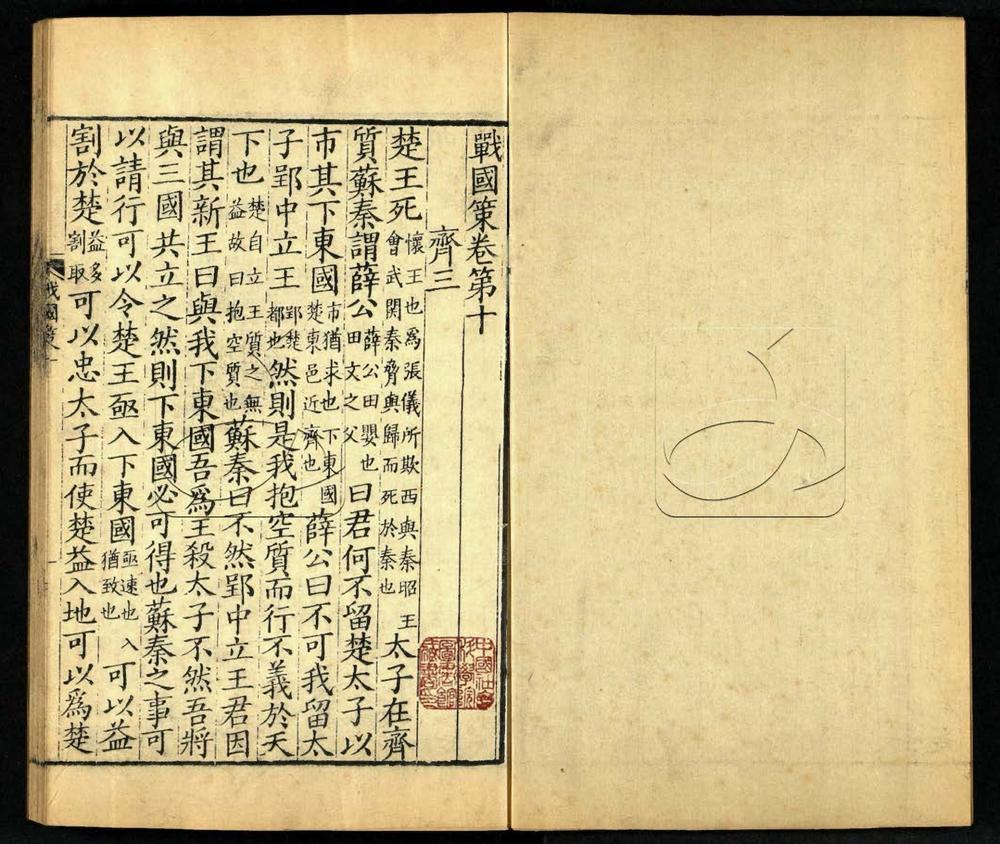 戰國策卷第十
齊三
楚王死懷王也爲張儀所欺西與秦昭王會武関秦脅與歸而死於秦也太子在齊
質蘇秦謂薛公薛公田嬰也田文之父曰君何不留楚太子以
市其下東國市猶求也下東國楚東邑近齊也薛公曰不可我留太
子郢中立王郢楚都也然則是我抱空質而行不義於天
下也楚自立王質之無益故曰抱空質也蘇秦曰不然郢中立王君因
謂其新王曰與我下東國吾爲王殺太子不然吾將
與三國共立之然則下東國必可得也蘇秦之事可
以請行可以令楚王亟入下東國亟速也入猶致也可以益
割於楚益多割取可以忠太子而使楚益入地可以爲楚